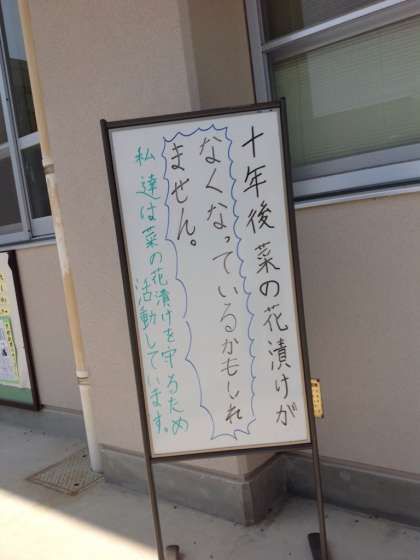 十年後菜の花漬けが
なくなっているかもしれ
ません。
私達は菜の花漬けを守るため
活動しています。